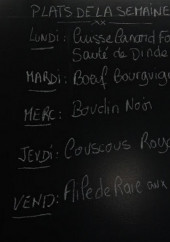 PLATS DE LA SEMAINE
LUNDI: Cuisse Canard
Sauté de Dinde
MARDI: Bœuf Bourguig
MERC: Boudin Noir
JEUDI: Couscous Roya
VEND: Aile de Raie aux